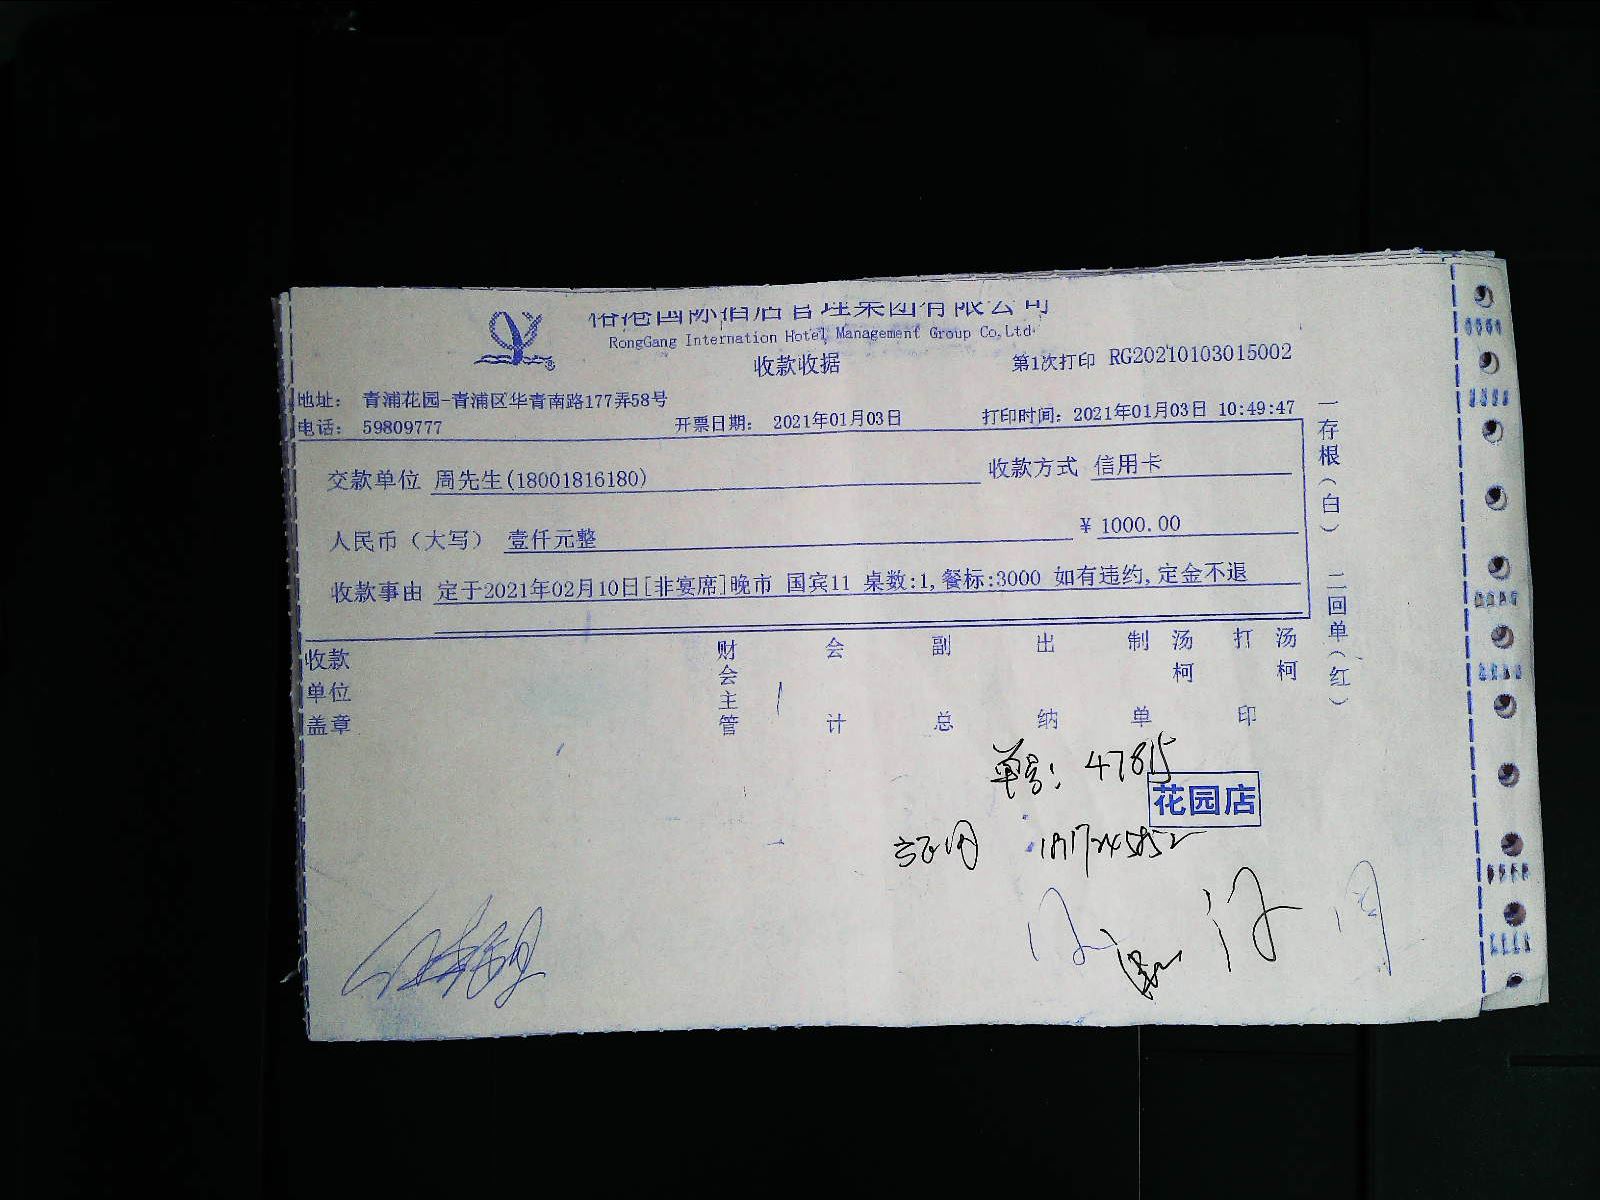 国际酒店管理集团有限公司
RongGang Internation Hotel Management Group Co,Ltd.
收款收据
第1次打印 RG20210103015002
地址： 青浦花园-青浦区华青南路177弄58号
电话： 59809777 开票日期： 2021年01月03日 打印时间：2021年01月03日 10:49:47
交款单位 周先生(18001816180) 收款方式 信用卡
人民币（大写） 壹仟元整 ¥ 1000.00
收款事由 定于2021年02月10日[非宴席]晚市 国宾11 桌数:1,餐标:3000 如有违约,定金不退
一存根（白） 二回单（红）
收款单位盖章 财会主管 会计 副总 出纳 制单 汤柯 打印 汤柯
单号：47815
花园店